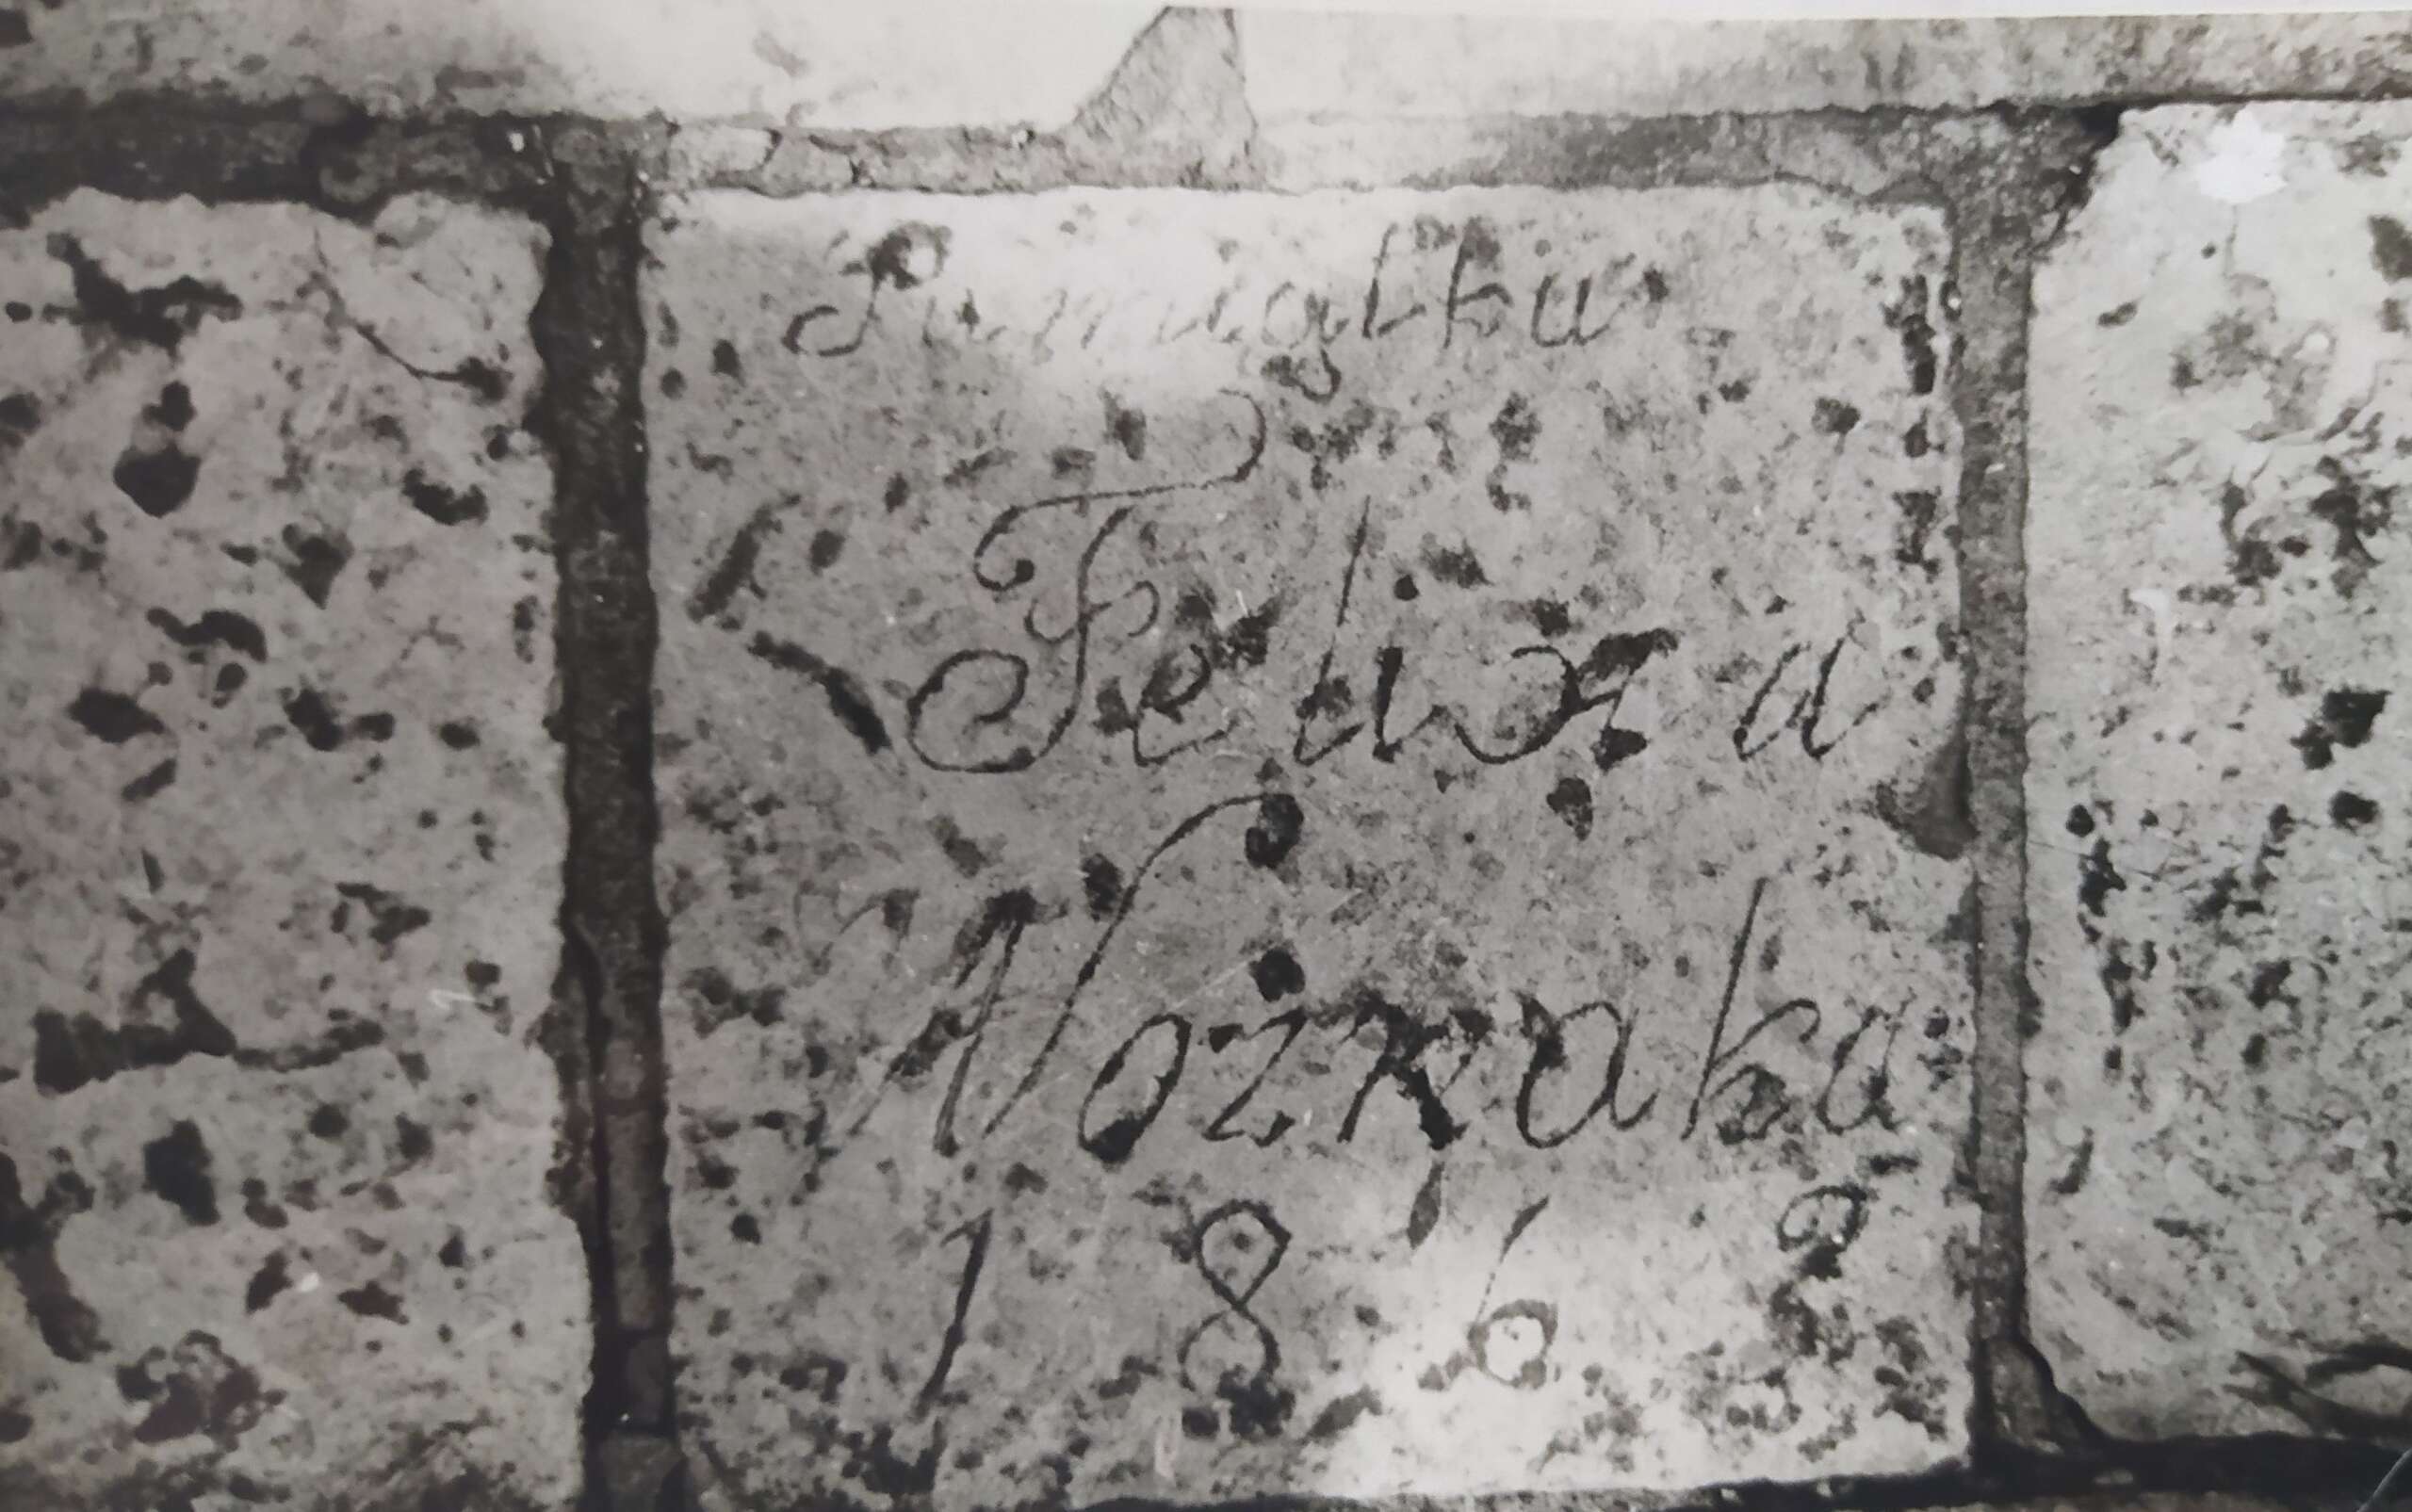 Pamiątka
Felixa
Nożyaka
1862